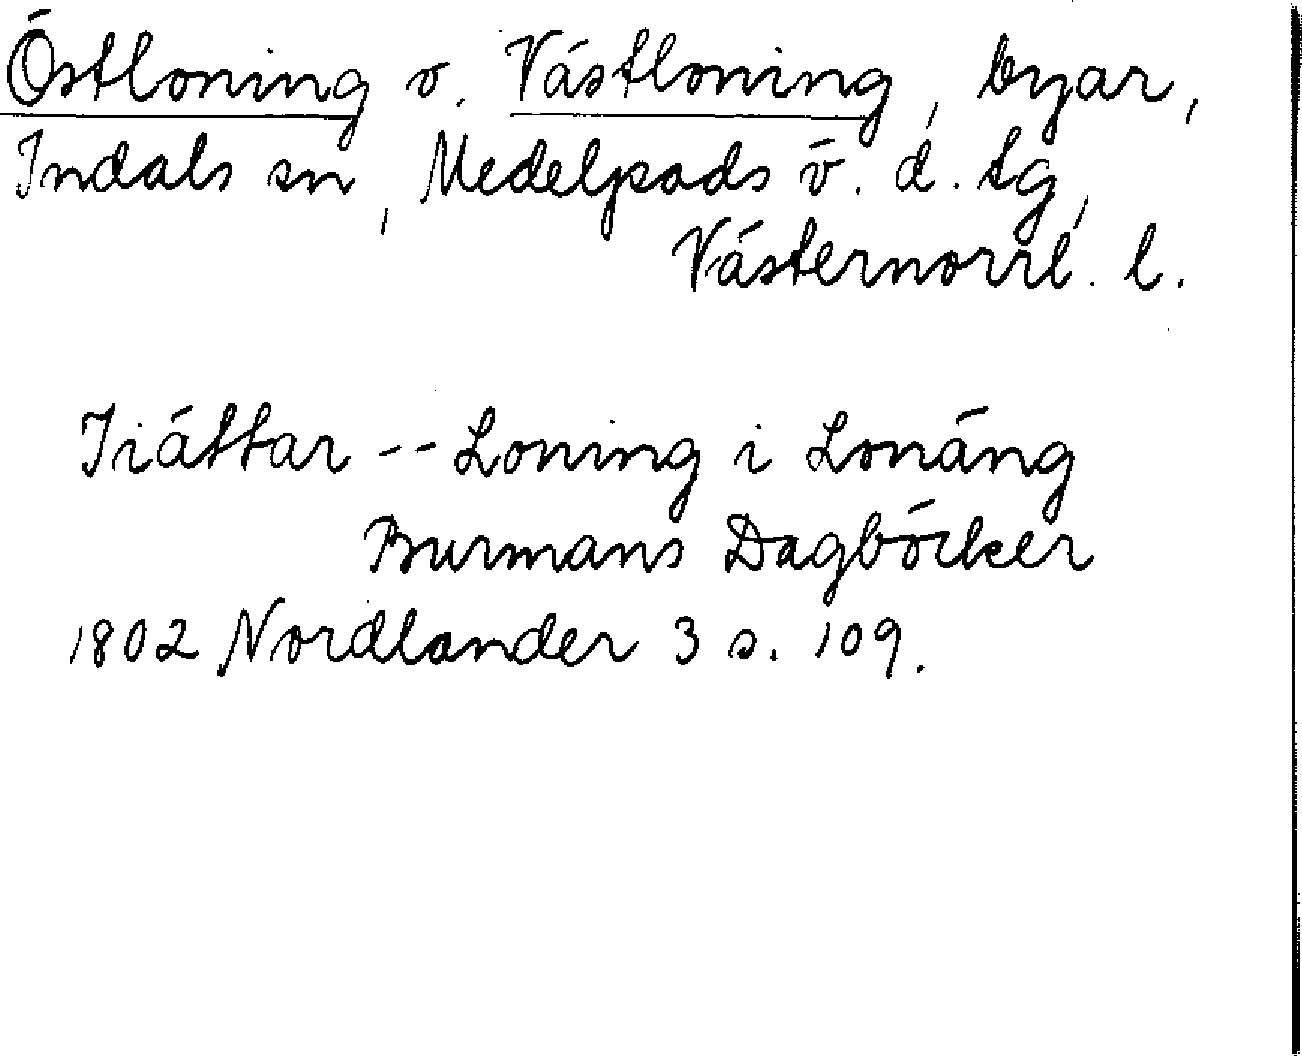 Östloning o. Västloning, byar,
Indals sn, Medelpads v. d. tg,
Västernorrl. l.
Iiättar -- Loning i Lonäng
Burmans Dagböcker
1802 Nordlander 3 s. 109.